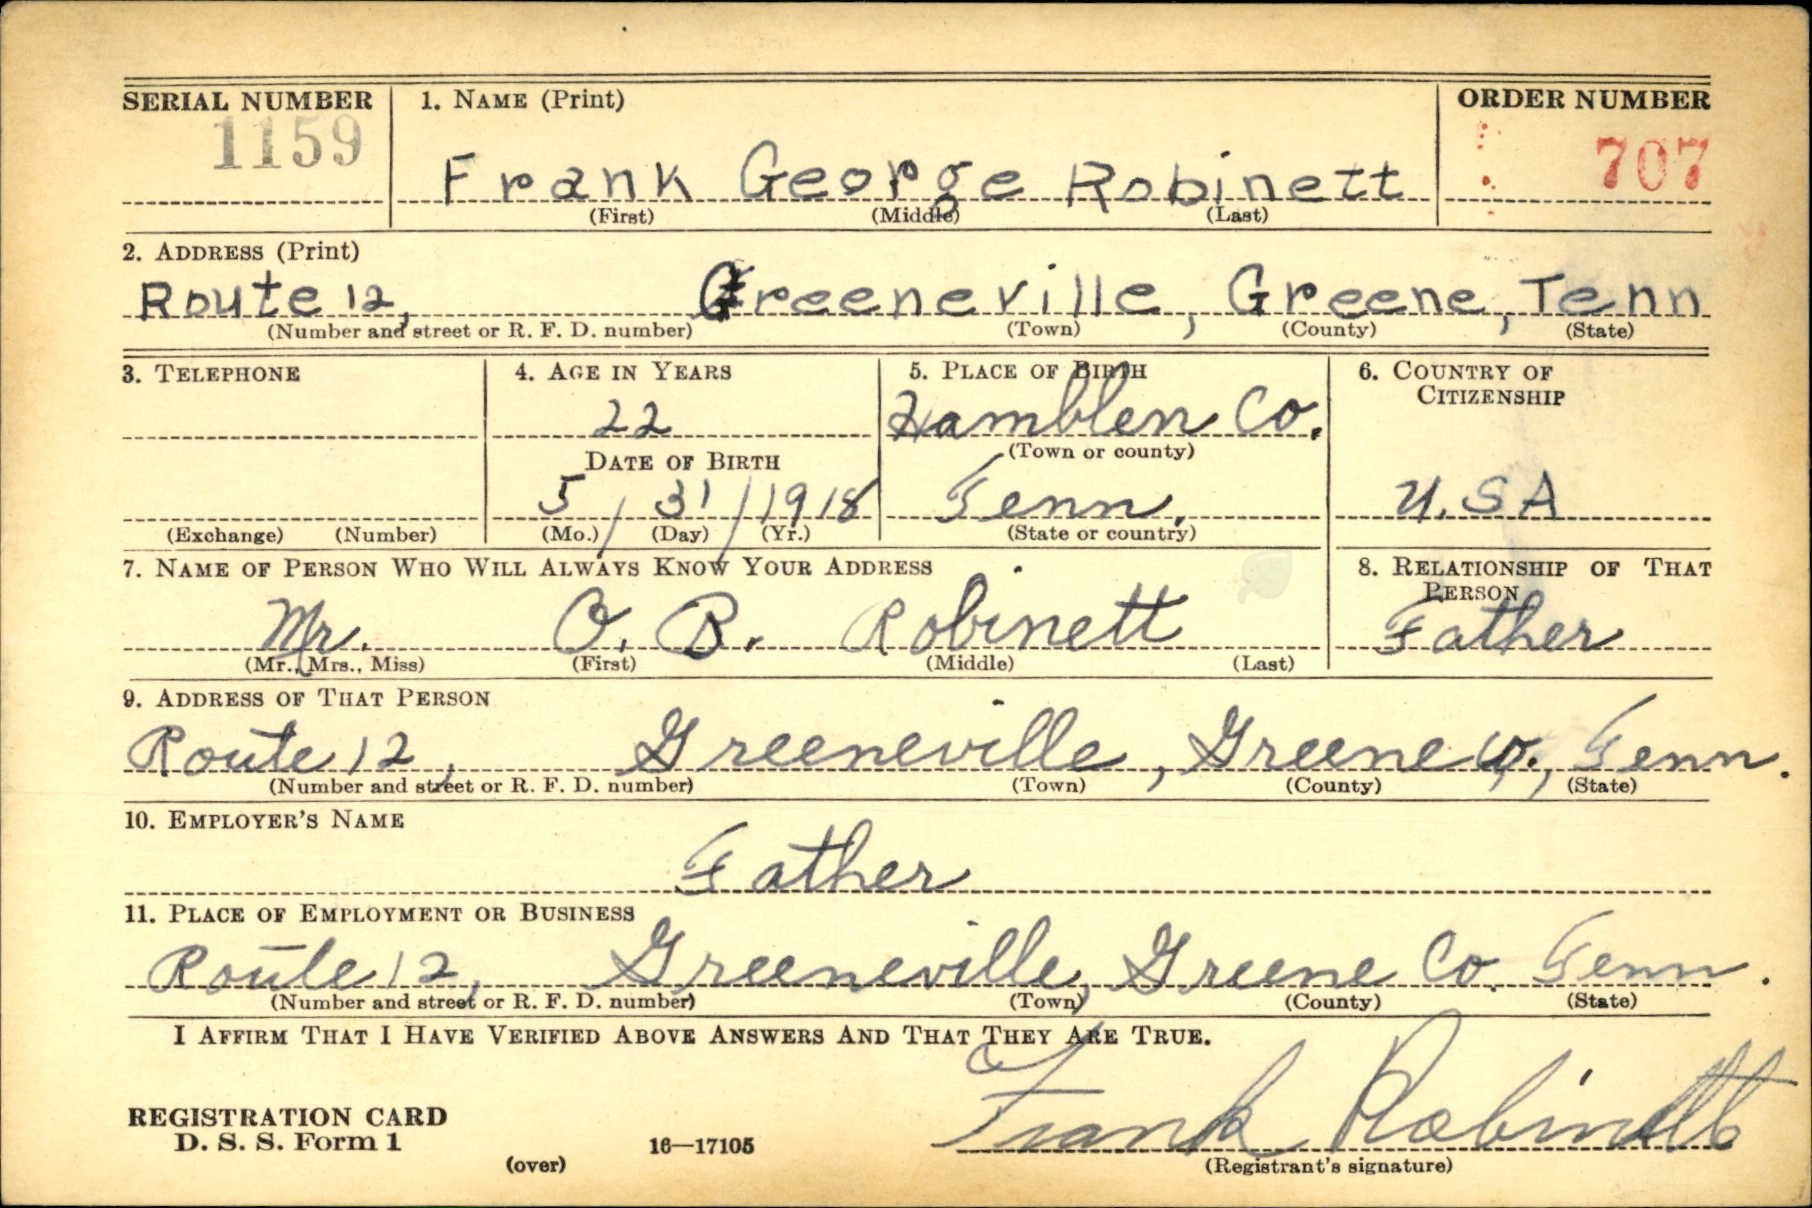 SERIAL NUMBER 1. NAME (Print) ORDER NUMBER
1159 Frank George Robinett 707
(First) (Middle) (Last)
2. ADDRESS (Print)
Route 12, Greeneville, Greene, Tenn
(Number and street or R. F. D. number) (Town) (County) (State)
3. TELEPHONE 4. AGE IN YEARS 5. PLACE OF BIRTH 6. COUNTRY OF CITIZENSHIP
22 Hamblen Co.
(Town or county)
DATE OF BIRTH
5/31/1918 Tenn. U.SA
(Exchange) (Number) (Mo.) (Day) (Yr.) (State or country)
7. NAME OF PERSON WHO WILL ALWAYS KNOW YOUR ADDRESS 8. RELATIONSHIP OF THAT PERSON
Mr. O. B. Robinett Father
(Mr., Mrs., Miss) (First) (Middle) (Last)
9. ADDRESS OF THAT PERSON
Route 12, Greeneville, Greene Co., Tenn.
(Number and street or R. F. D. number) (Town) (County) (State)
10. EMPLOYER'S NAME
Father
11. PLACE OF EMPLOYMENT OR BUSINESS
Route 12, Greeneville, Greene Co. Tenn.
(Number and street or R. F. D. number) (Town) (County) (State)
I AFFIRM THAT I HAVE VERIFIED ABOVE ANSWERS AND THAT THEY ARE TRUE.
Frank Robinett
REGISTRATION CARD
D. S. S. Form 1 16—17105
(over) (Registrant's signature)